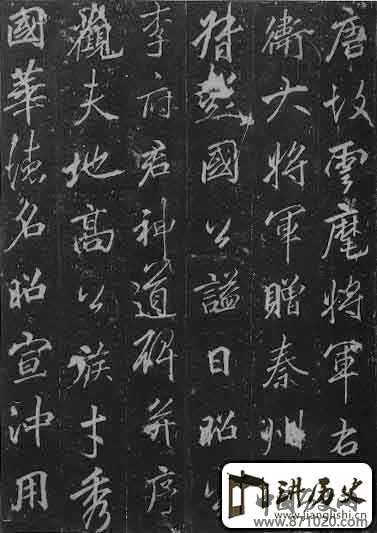 唐故雲麾將軍右
衛大將軍贈秦州
督彭國公謚曰昭公
李府君神道碑并序
觀夫地高公族才秀
國華德名昭宣沖用
讲历史
www.jianglishi.cn
www.871020.com